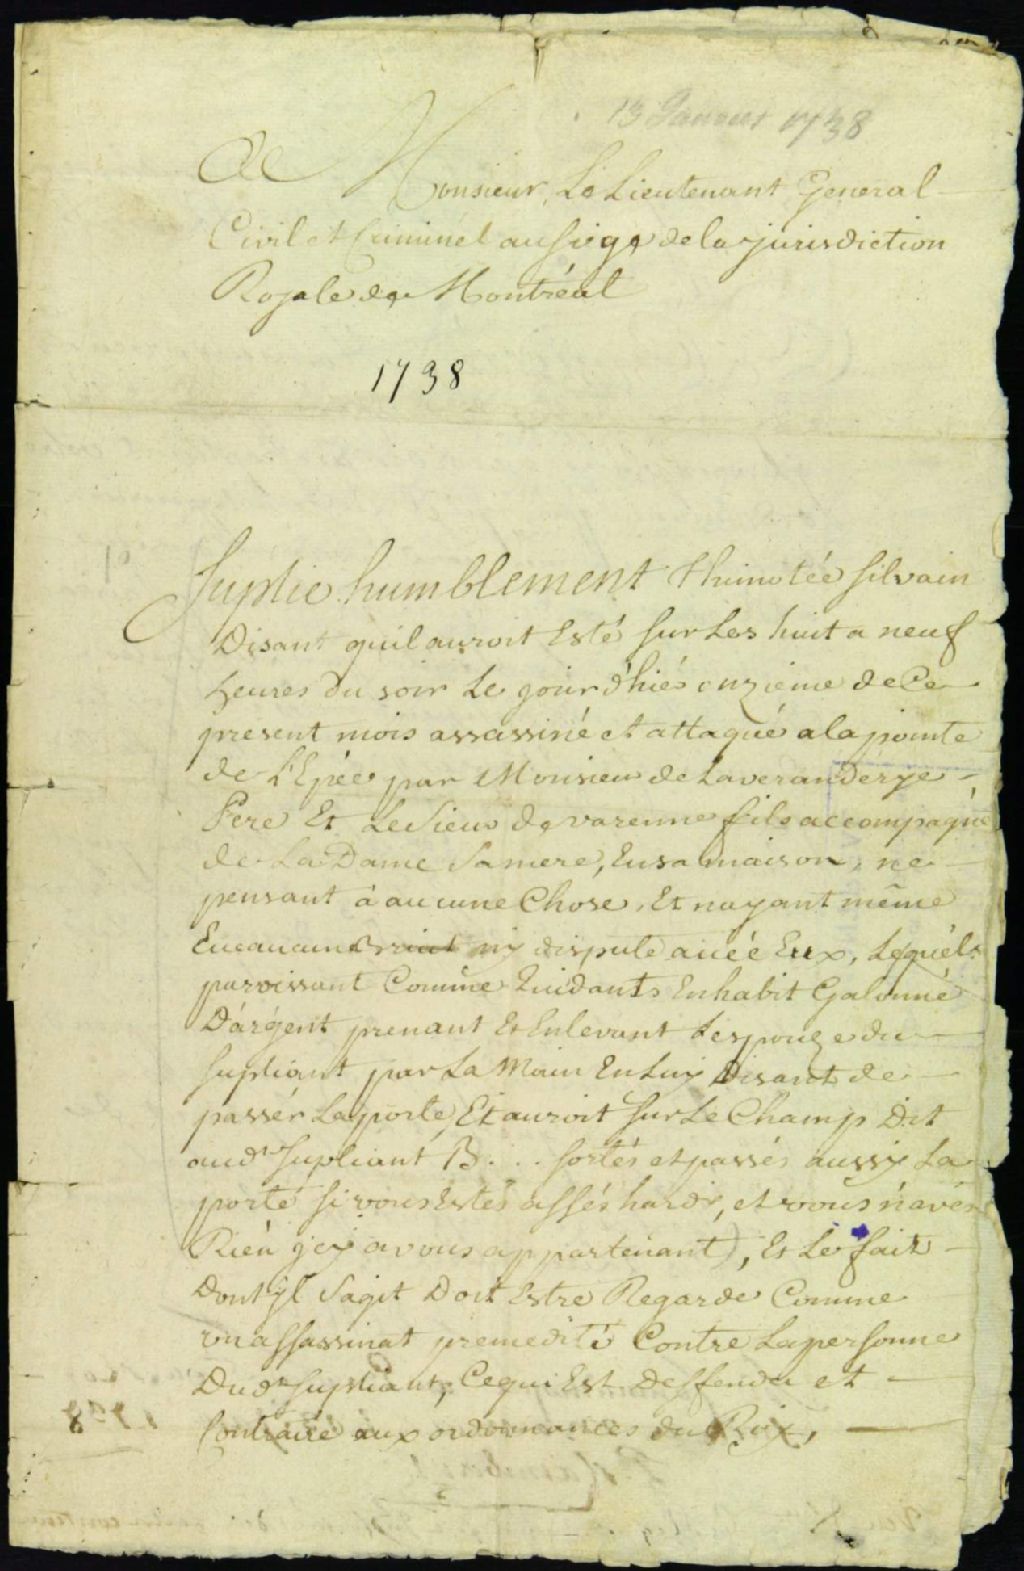 13 Janvier 1738
A Monsieur, Le Lieutenant General
Civil et Criminel au siege de la jurisdiction
Royale de Montréal
1738
Suplie humblement Thimotée Silvain
Disant quil auroit Esté sur Les huit a neuf
heures du soir Le jour d'hié onzieme de Ce
present mois assassiné et attaqué a la pointe
de L'Epée par Monsieur de Laveranderye
Pere Et Le Sieur de varenne fils accompagné
de La Dame Sa mere, En sa maison, ne
pensant à aucune Chose, Et nayant même
Eu aucun ny dispute avéé Eux, Lequéls
paroissant Comme quidants En habit Galonné
D'argent prenant Et Enlevant Lespouze du
supliant par La Main En Luy Disant de
passér La porte, Et auroit sur Le Champ Dit
aud.r Supliant B... sortés et passés aussy La
porté si vous Estes assés hardy, et vous n'avés
Rien jcy a vous appartenant), Et Le fait
Dont jl sagit Doit Estre Regardé Comme
un assassinat premedité Contre La personne
Dud.r Supliant, Ce qui Est Deffendu et
Contraire aux ordonnances du Roix,